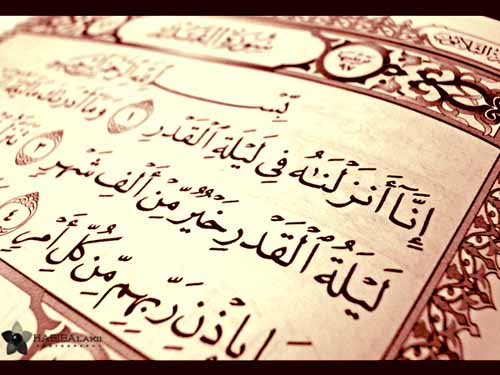 سُورَةُ القَدْرِ
بِسْمِ ٱللَّهِ ٱلرَّحْمَٰنِ ٱلرَّحِيمِ
إِنَّآ أَنزَلْنَٰهُ فِى لَيْلَةِ ٱلْقَدْرِ ١ وَمَآ أَدْرَىٰكَ
لَيْلَةُ ٱلْقَدْرِ خَيْرٌ مِّنْ أَلْفِ شَهْرٍ ٣
بِإِذْنِ رَبِّهِم مِّن كُلِّ أَمْرٍ ٤
PHOTOGRAPHY